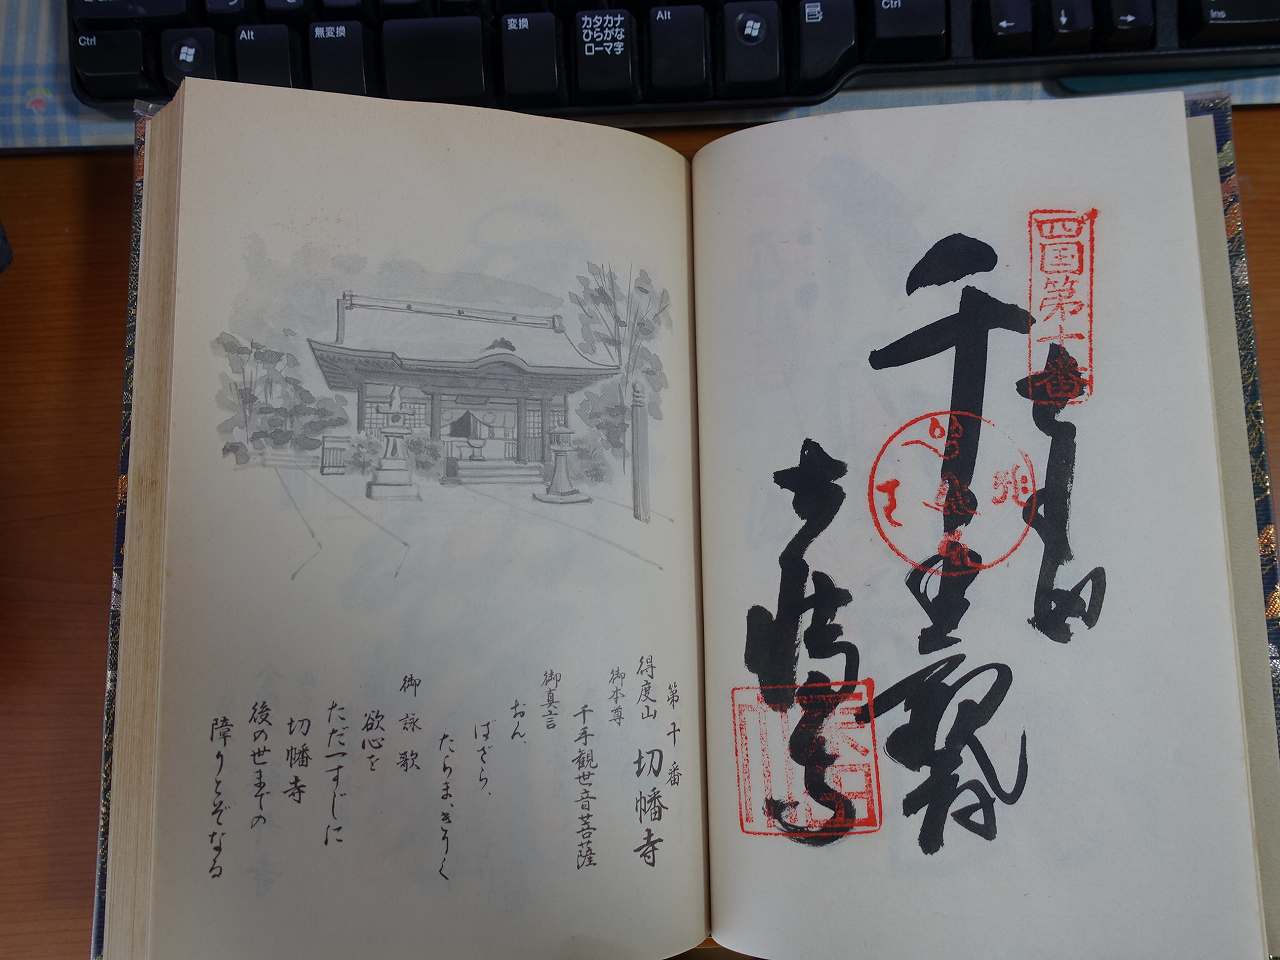 Ctrl
Alt
無変換
変換
カタカナ
ひらがな
ローマ字
Alt
Ctrl
Ins
四国第十番
奉納
千手観音
切幡寺
第十番
得度山 切幡寺
御本尊
千手観世音菩薩
御真言
おん、
ばざら、
たらま、きりく
御詠歌
欲心を
ただ一すじに
切幡寺
後の世までの
障りとぞなる